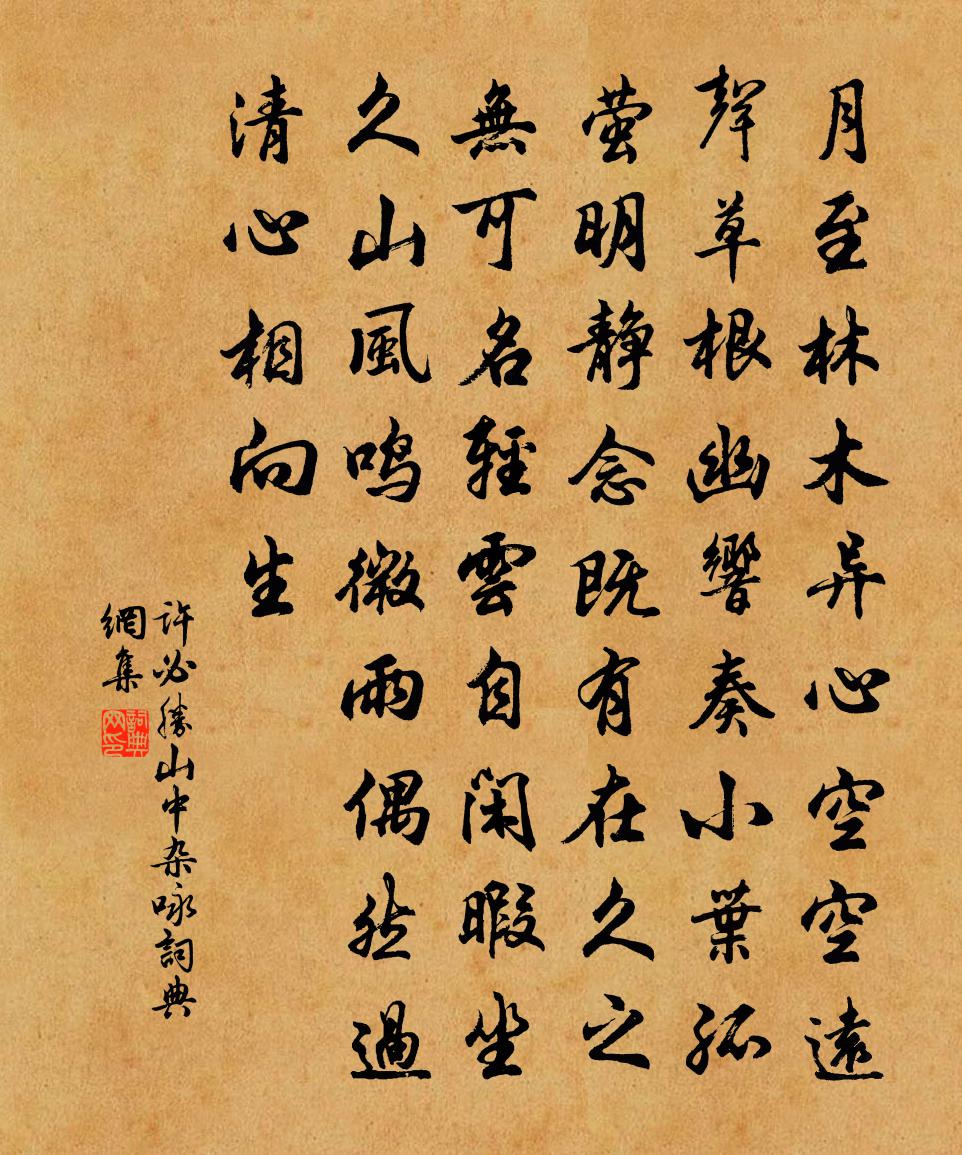 月至林木异心空空遠
聲草根幽響奏小葉孤
萤明静念既有在久之
無可名輕雲自閑暇坐
久山風鸣微雨偶然過
清心相向生
许必勝山中杂咏詞典
網集
詞典网印